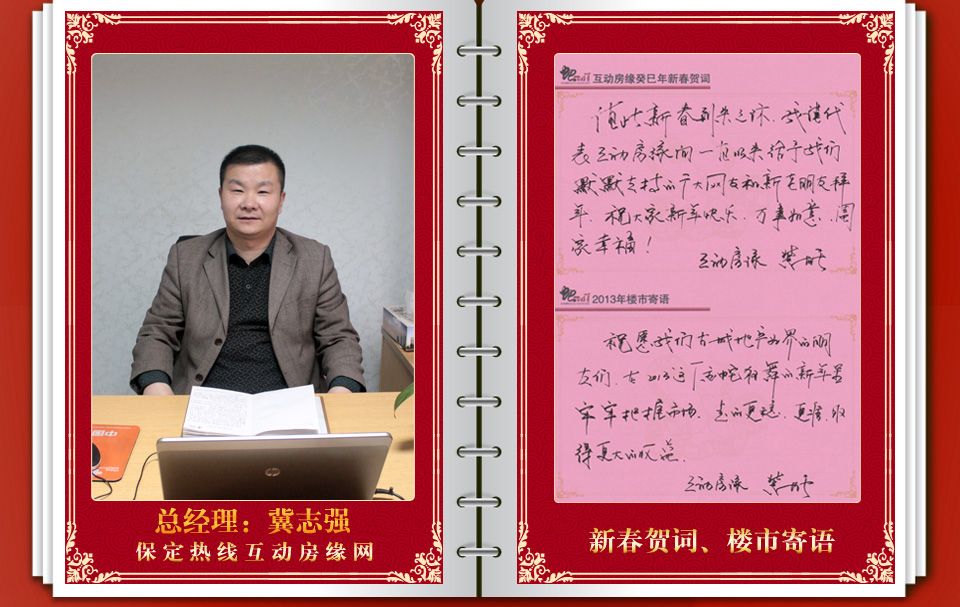 总经理：冀志强
保定热线互动房缘网
互动房缘癸巳年新春贺词
值此新春到来之际，我谨代
表互动房缘向一直以来给予我们
默默支持的广大网友和新老朋友拜
年，祝大家新年快乐，万事如意，阖
家幸福！
互动房缘
2013年楼市寄语
祝愿我们古城地产业界的朋
友们，在2013这个金蛇狂舞的新年里
牢牢把握市场，走的更稳，更踏，收
得更大的收益。
互动房缘
新春贺词、楼市寄语
hp